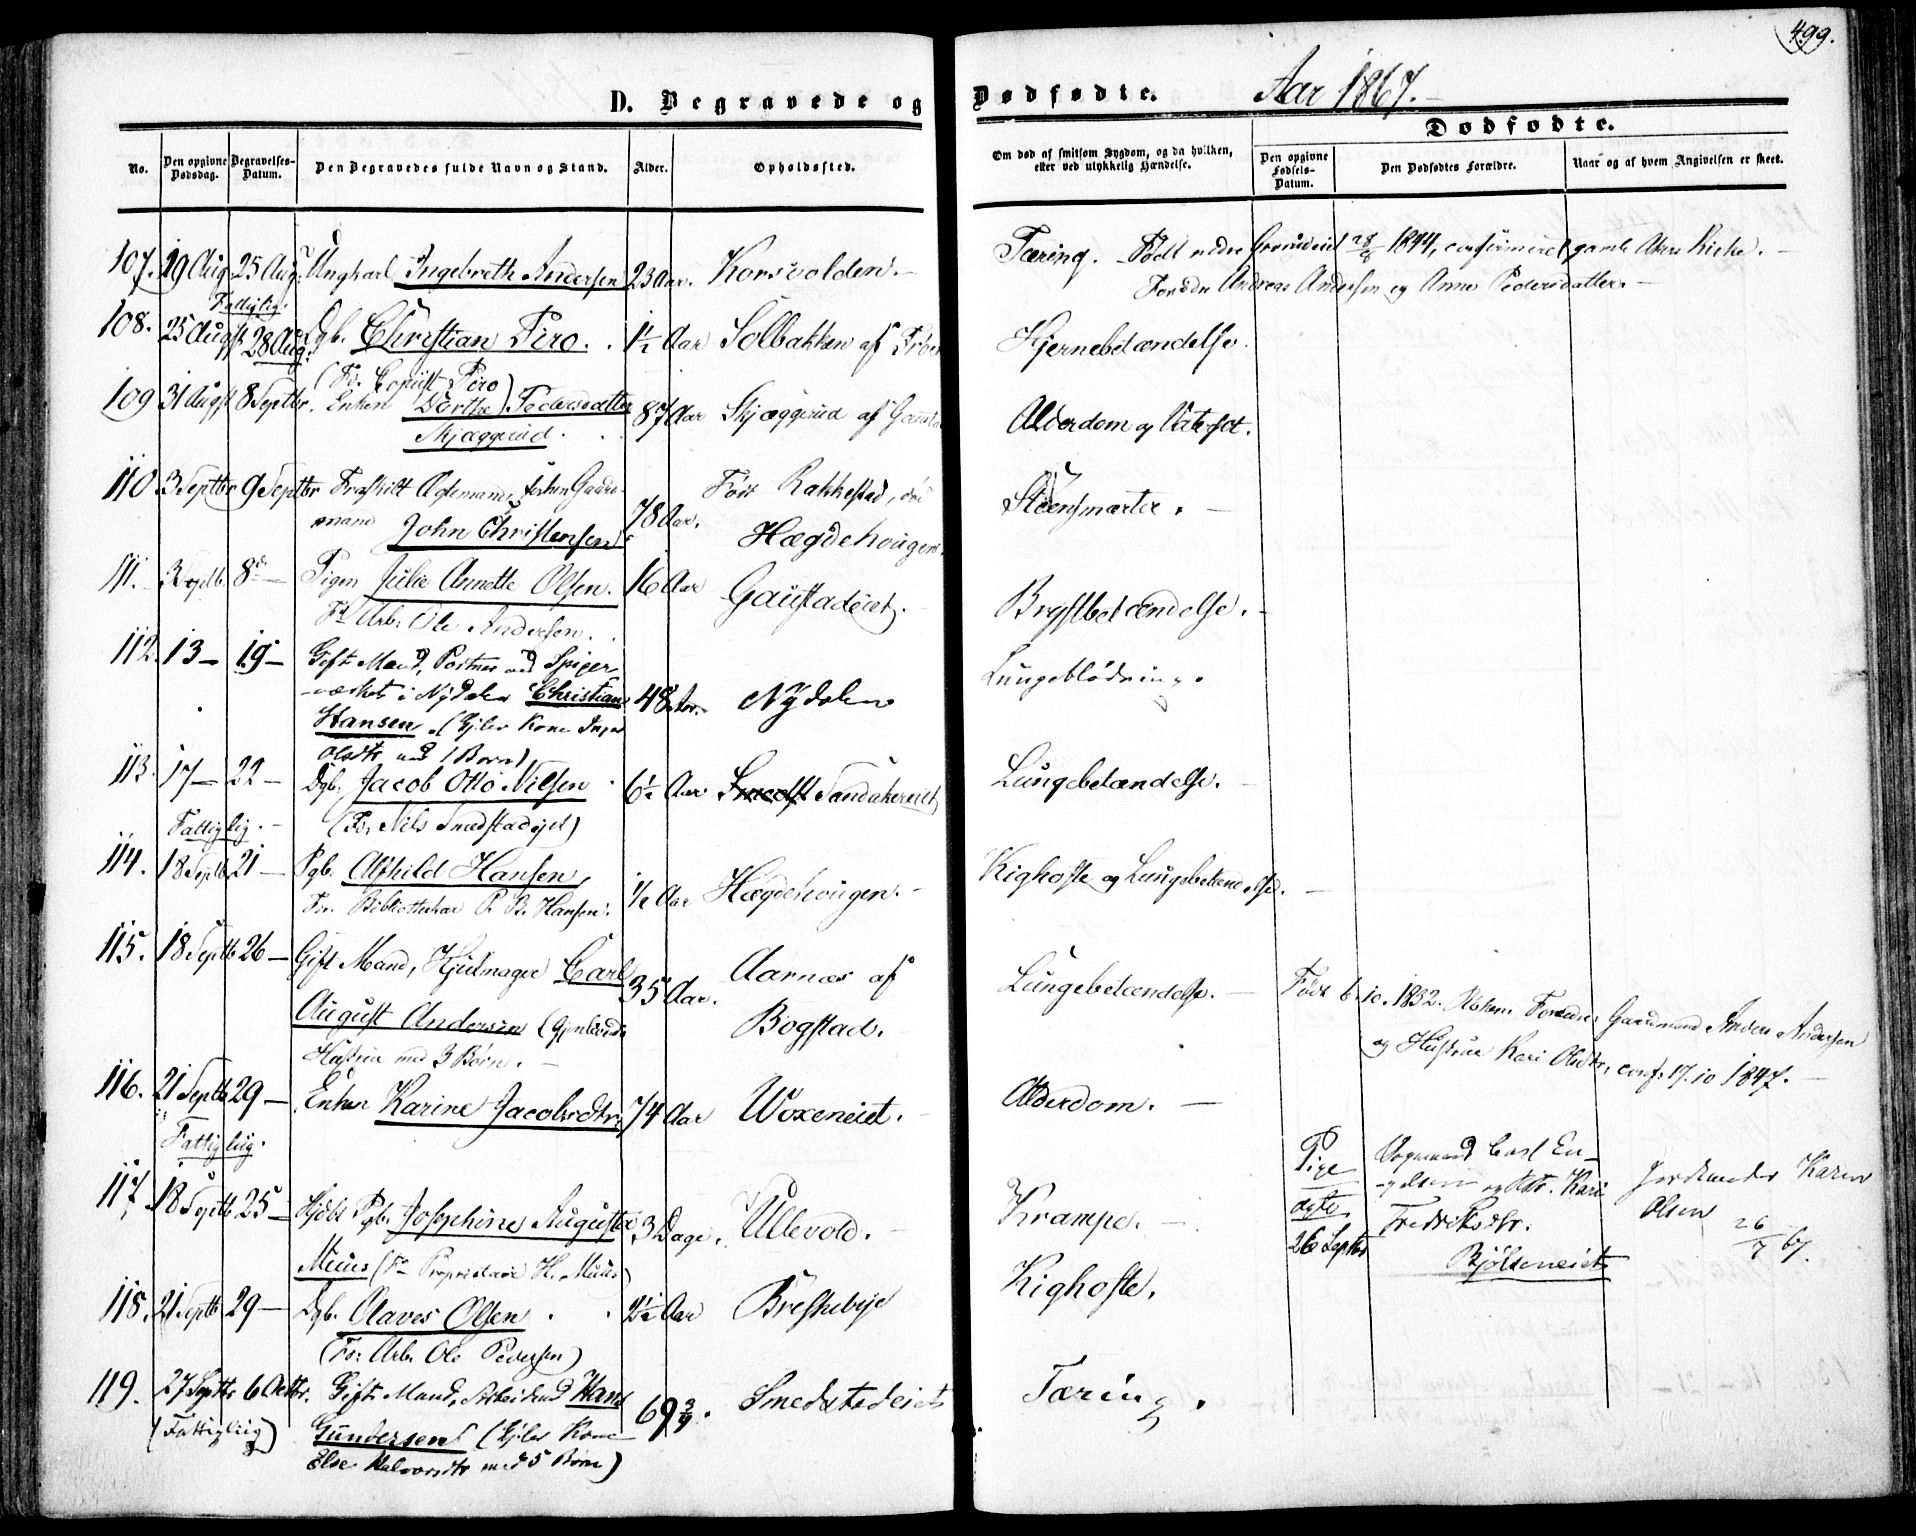 499.
D. Begravede og Dødfødte. Aar 1867.
Dødfødte.
No.
Den opgivne Dødsdag.
Begravelses-Datum.
Den Begravedes fulde Navn og Stand.
Alder.
Opholdssted.
Om død af smitsom Sygdom, og da hvilken, eller ved ulykkelig Hændelse.
Den opgivne Fødsels-Datum.
Den Dødfødtes Forældre.
Naar og af hvem Angivelsen er skeet.
107. 19 Aug 25 Aug. Ungkarl Ingebreth Andersen 23 Aar. Korsvolden. Tæring. Født nedre Grændseiet 28/8 1844, confirmeret gamle Akers Kirke.
Forældre Andreas Andersen og Anne Pedersdatter.
Fattiglig.
108. 25 Augst 28 Aug. Dgb. Christian Piro. 1½ Aar Solbakken af Hjernebetændelse.
(Fr. Copiist Piro)
109 31 Augst 8 Septbr. Enken Dorthe Pedersdatter 87 Aar Skjæggerud af Alderdom og Vatersot.
Skjæggerud.
110. 3 Septbr 9 Septbr Fraskilt Ægtemand, forhen Gaard-
mand John Christensen 78 Aar. Født Rakkestad,
Hægdehougen. Steensmerter.
111. 3 Septb 8de Pigen Julie Annette Olsen. 16 Aar Gaustadeiet. Brystbetændelse.
Fr Arb. Ole Andersen.
112. 13 – 19 – Gift Mand, Portner ved Spiger-
værket i Nydalen Christian 48 Aar. Nydalen Lungeblödning.
Hansen. (Efterl. Kone Inger
Olsdtr med 1 Barn)
113. 17 – 22 – Dgb. Jacob Otto Nilsen 6½ Aar Sandakereiet Lungebetændelse.
Fattiglig. (Fr. Nils Smedstadeiet)
114. 18 Septb 21 – Pgb. Alfhild Hansen, ½ Aar Hægdehougen. Kighoste og Lungebetændelse.
Fr. Bibliothekar P. B. Hansen.
115. 18 Septb 26 – Gift Mand, Hjulmager Carl 35 Aar. Aarnæs af Lungebetændelse. Født 6.10.1832. Forældre Gaardmand Anders Andersen
August Andersen (Gjenlevende Bogstad. og Hustrue Kari Olsdtr, conf. 17.10 1847.
Hustrue med 3 Børn.
116. 21 Septb 29 – Enken Karine Jacobsdtr, 74 Aar Voxeneiet. Alderdom.
Fattiglig.
Pige
ægte
26 Septbr
Vognmand Carl En-
gelsen og Hst. Kari
Fredriksdtr.
Bjølseneiet
Jordmoder Karen
Olsen
26/7 67.
117. 18 Septb 25 – Hjdbt Pgb. Josephine Augusta 3 Dage. Ullevold. Krampe.
Muus (Fr Proprietair H. Muus)
118. 21 Septb 29 – Dgb. Olaves Olsen 2½ Aar Breskebye Kighoste.
(Fr. Arb. Ole Pedersen)
119. 27 Septbr 6 Octbr. Gift Mand, Arbeidsmd Hans 69 ¾. Smedstadeiet Tæring.
(Fattiglig) Gundersen (Efterl. Kone
Else Halvorsdtr med 5 Børn)